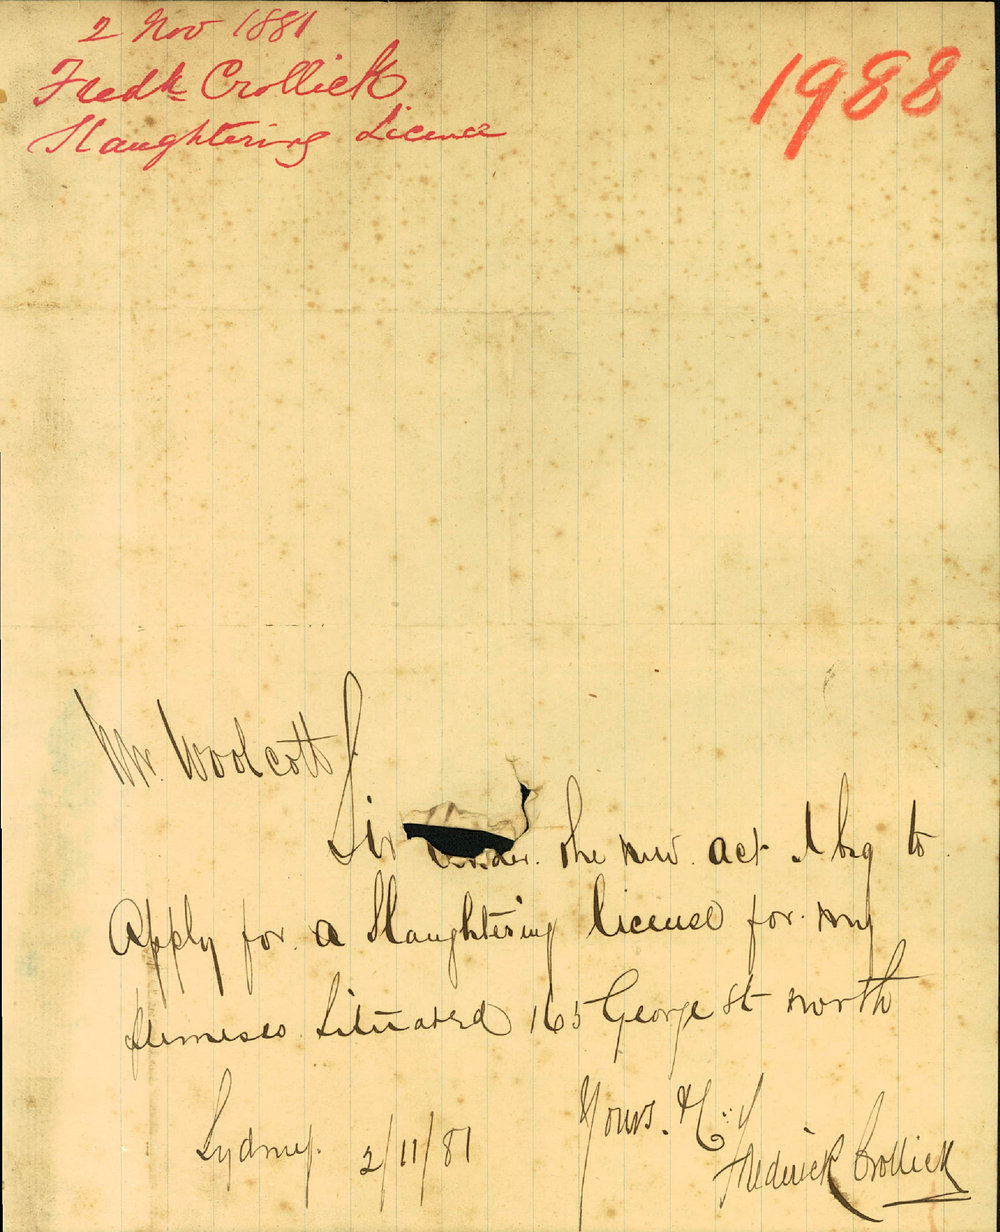 2 Nov 1881
Fredk Crollick
Slaughtering Licence
1988
Mr. Woolcott
Sir under. the new act I beg to
Apply for. a Slaughtering license for. my
premises Situated 165 George St north
Yours. &c
Sydney. 2/11/81
Frederick Crollick